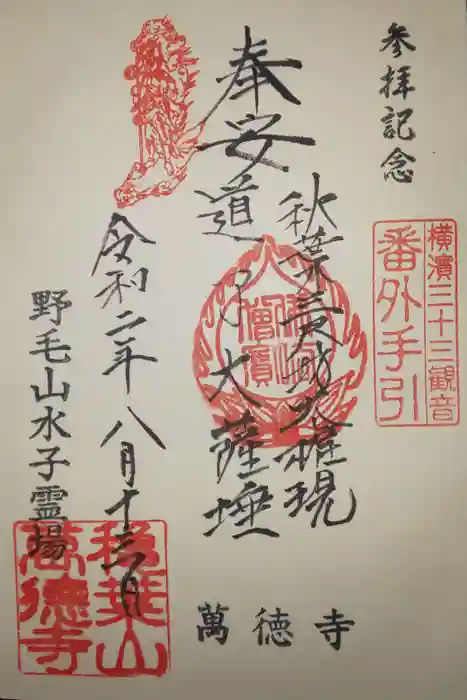 参拝記念
横濱三十三観音
番外手引
奉安
秋葉三尺坊大権現
道了大薩埵
令和二年八月十三日
野毛山水子霊場
萬徳寺
秋葉山
萬徳寺